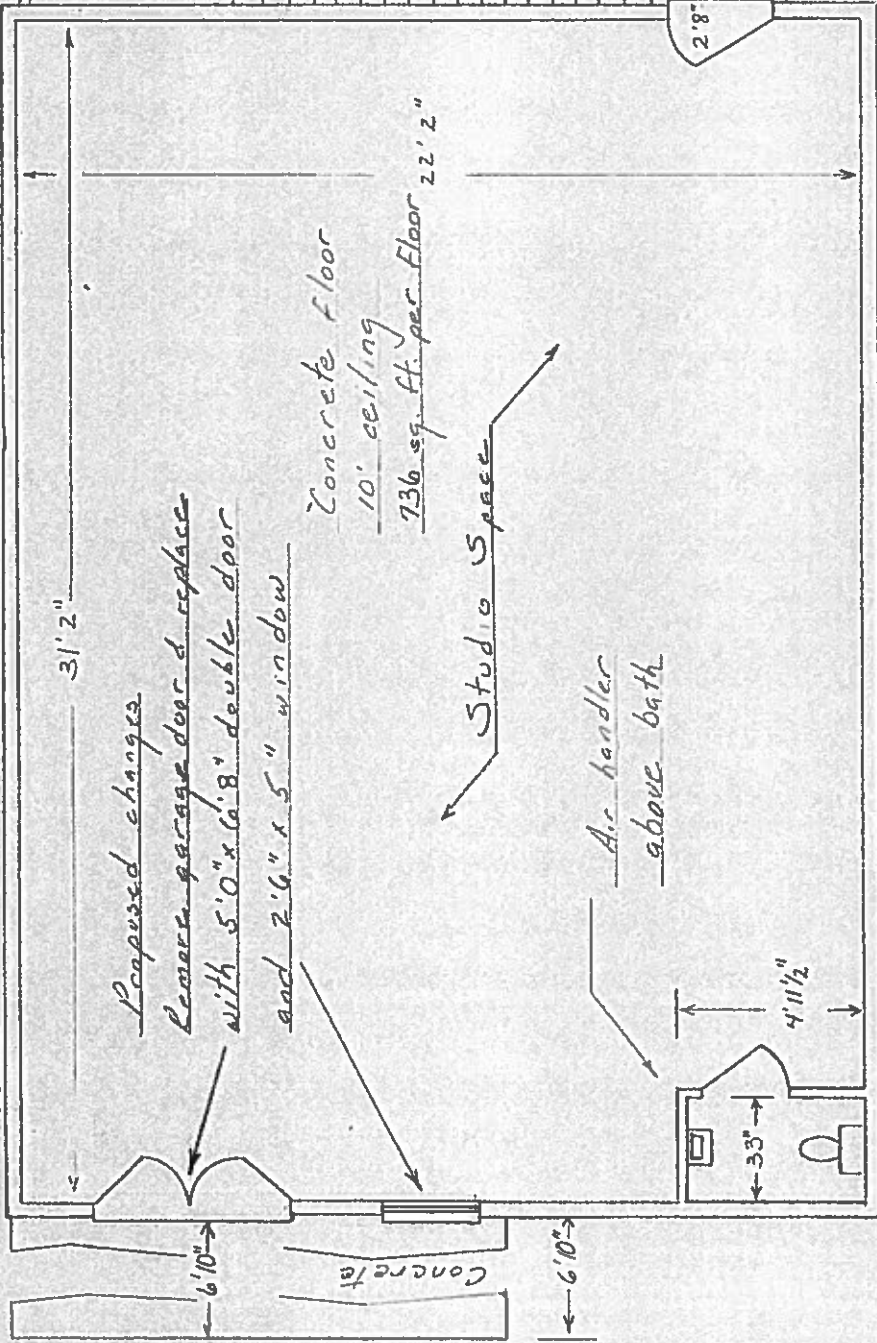 31'2"
2'8"
22'2"
Proposed changes
Remove garage door & replace
with 5'0" x 6'8" double door
and 2'6" x 5" window
Concrete floor
10' ceiling
736 sq. ft. per floor
Studio Space
Air handler
above bath
4'11½"
33"
6'10"
Concrete
6'10"